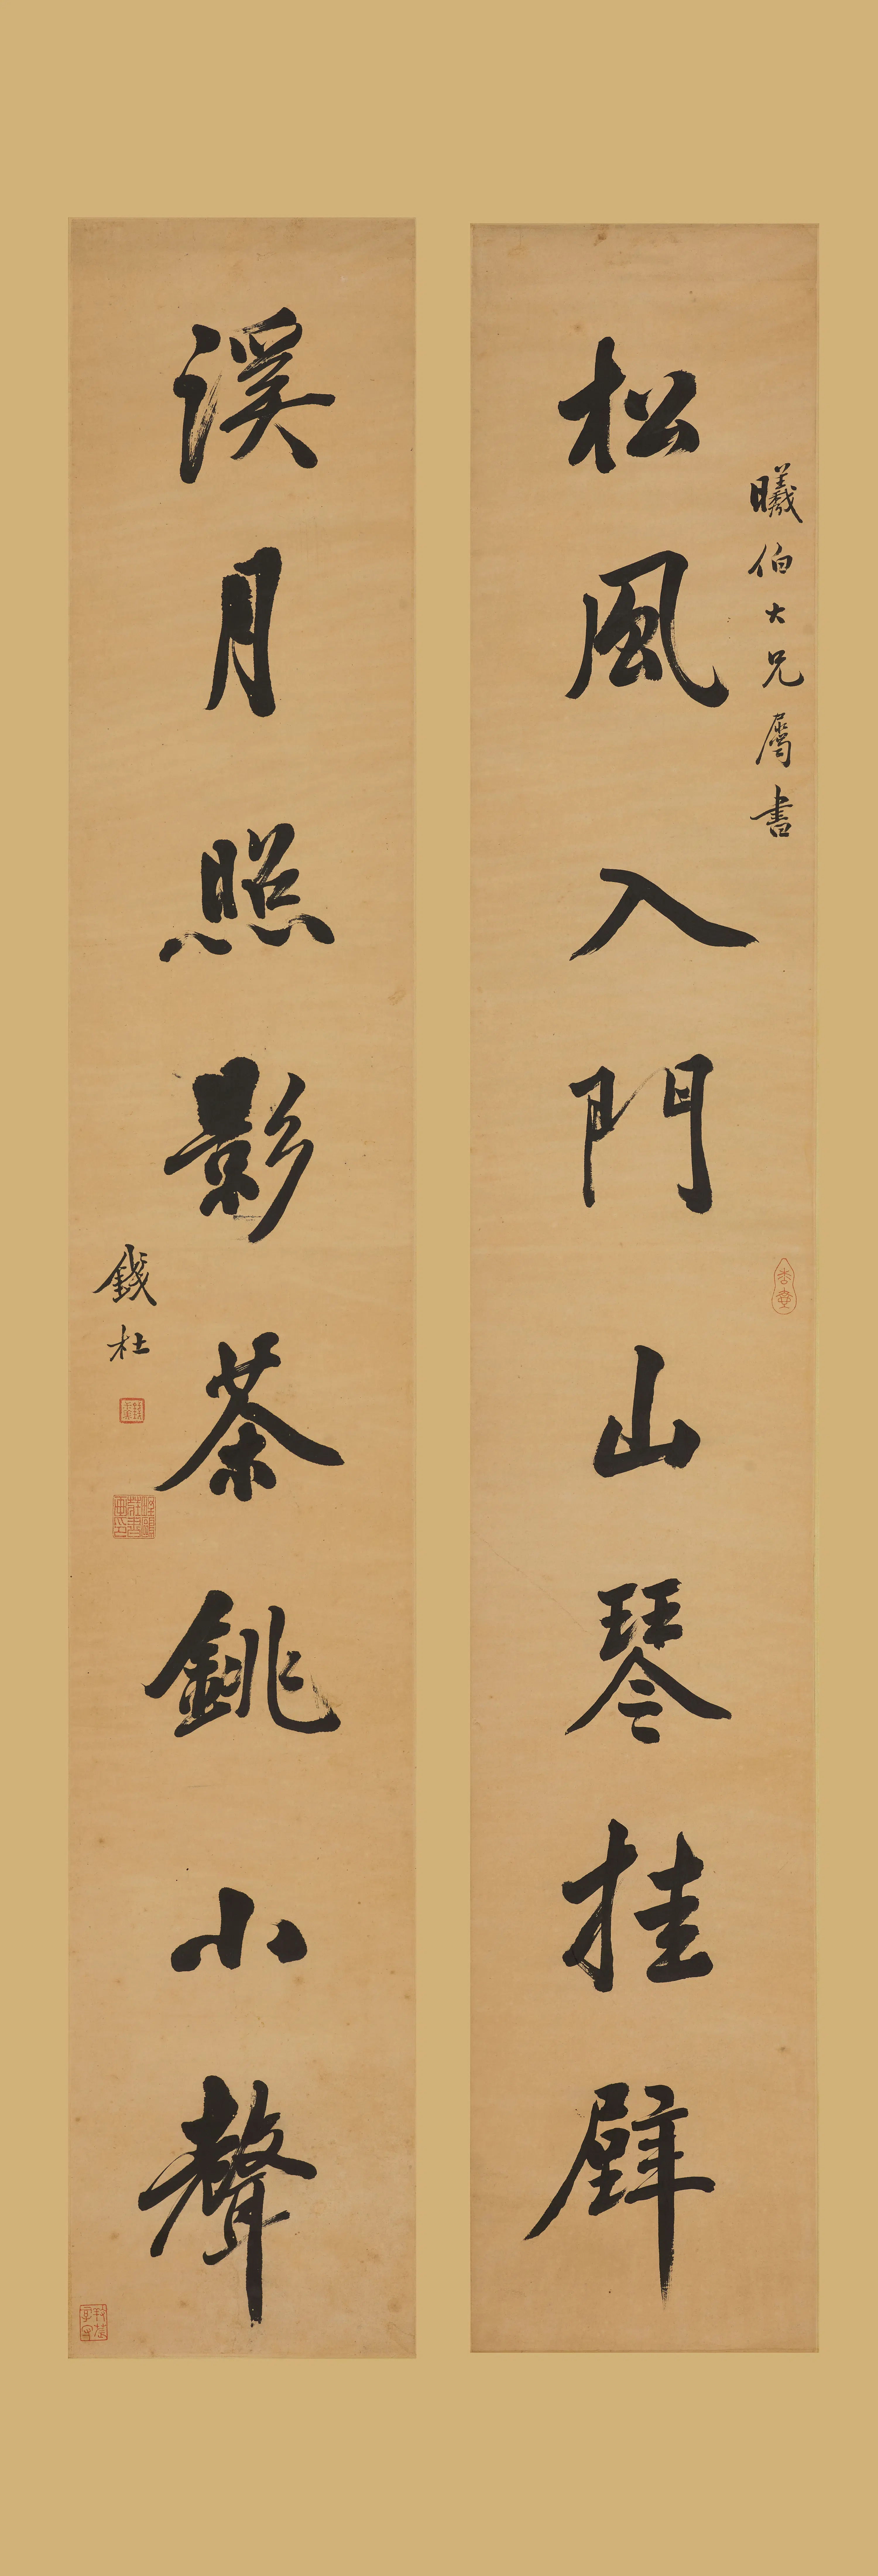 曦伯大兄屬書
松風入門山琴挂壁
溪月照影茶銚小聲
錢杜